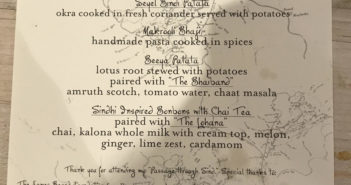 Seyel Sindi Patata
okra cooked in fresh coriander served with potatoes
Makrooli Bhaji
handmade pasta cooked in spices
Beeya Patata
lotus root stewed with potatoes
paired with "The Bhaiband"
amruth scotch, tomato water, chaat masala
Sindhi Inspired Bonbons with Chai Tea
paired with "The Lohana"
chai, kalona whole milk with cream top, melon,
ginger, lime zest, cardamom
Thank you for attending my Passage through Sind. Special thanks to: